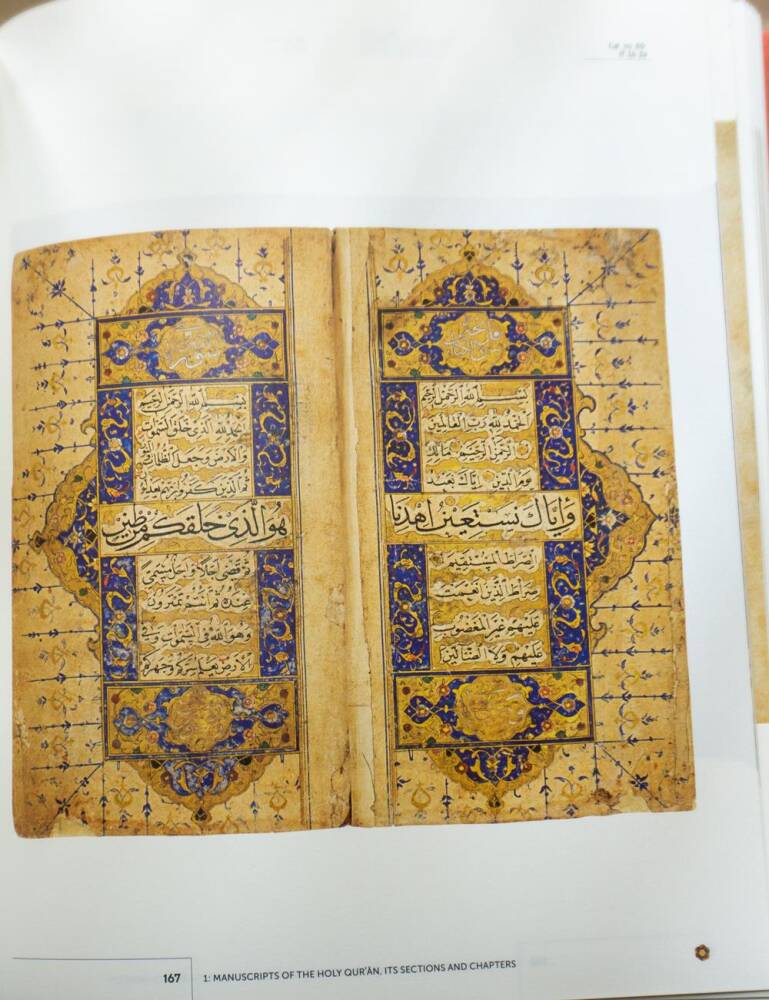 بسم الله الرحمن الرحيم
الحمد لله رب العالمين
الرحمن الرحيم مالك
يوم الدين اياك نعبد
واياك نستعين اهدنا
الصراط المستقيم
صراط الذين انعمت
عليهم غير المغضوب
عليهم ولا الضالين
سورة
بسم الله الرحمن الرحيم
الحمد لله الذي خلق السموات
والارض وجعل الظلمات والنور
ثم الذين كفروا بربهم
هو الذي خلقكم من طين
ثم قضى اجلا واجل مسمى
عنده ثم انتم تمترون
وهو الله في السموات وفي
الارض يعلم سركم وجهركم
167 1: MANUSCRIPTS OF THE HOLY QUR'ĀN, ITS SECTIONS AND CHAPTERS